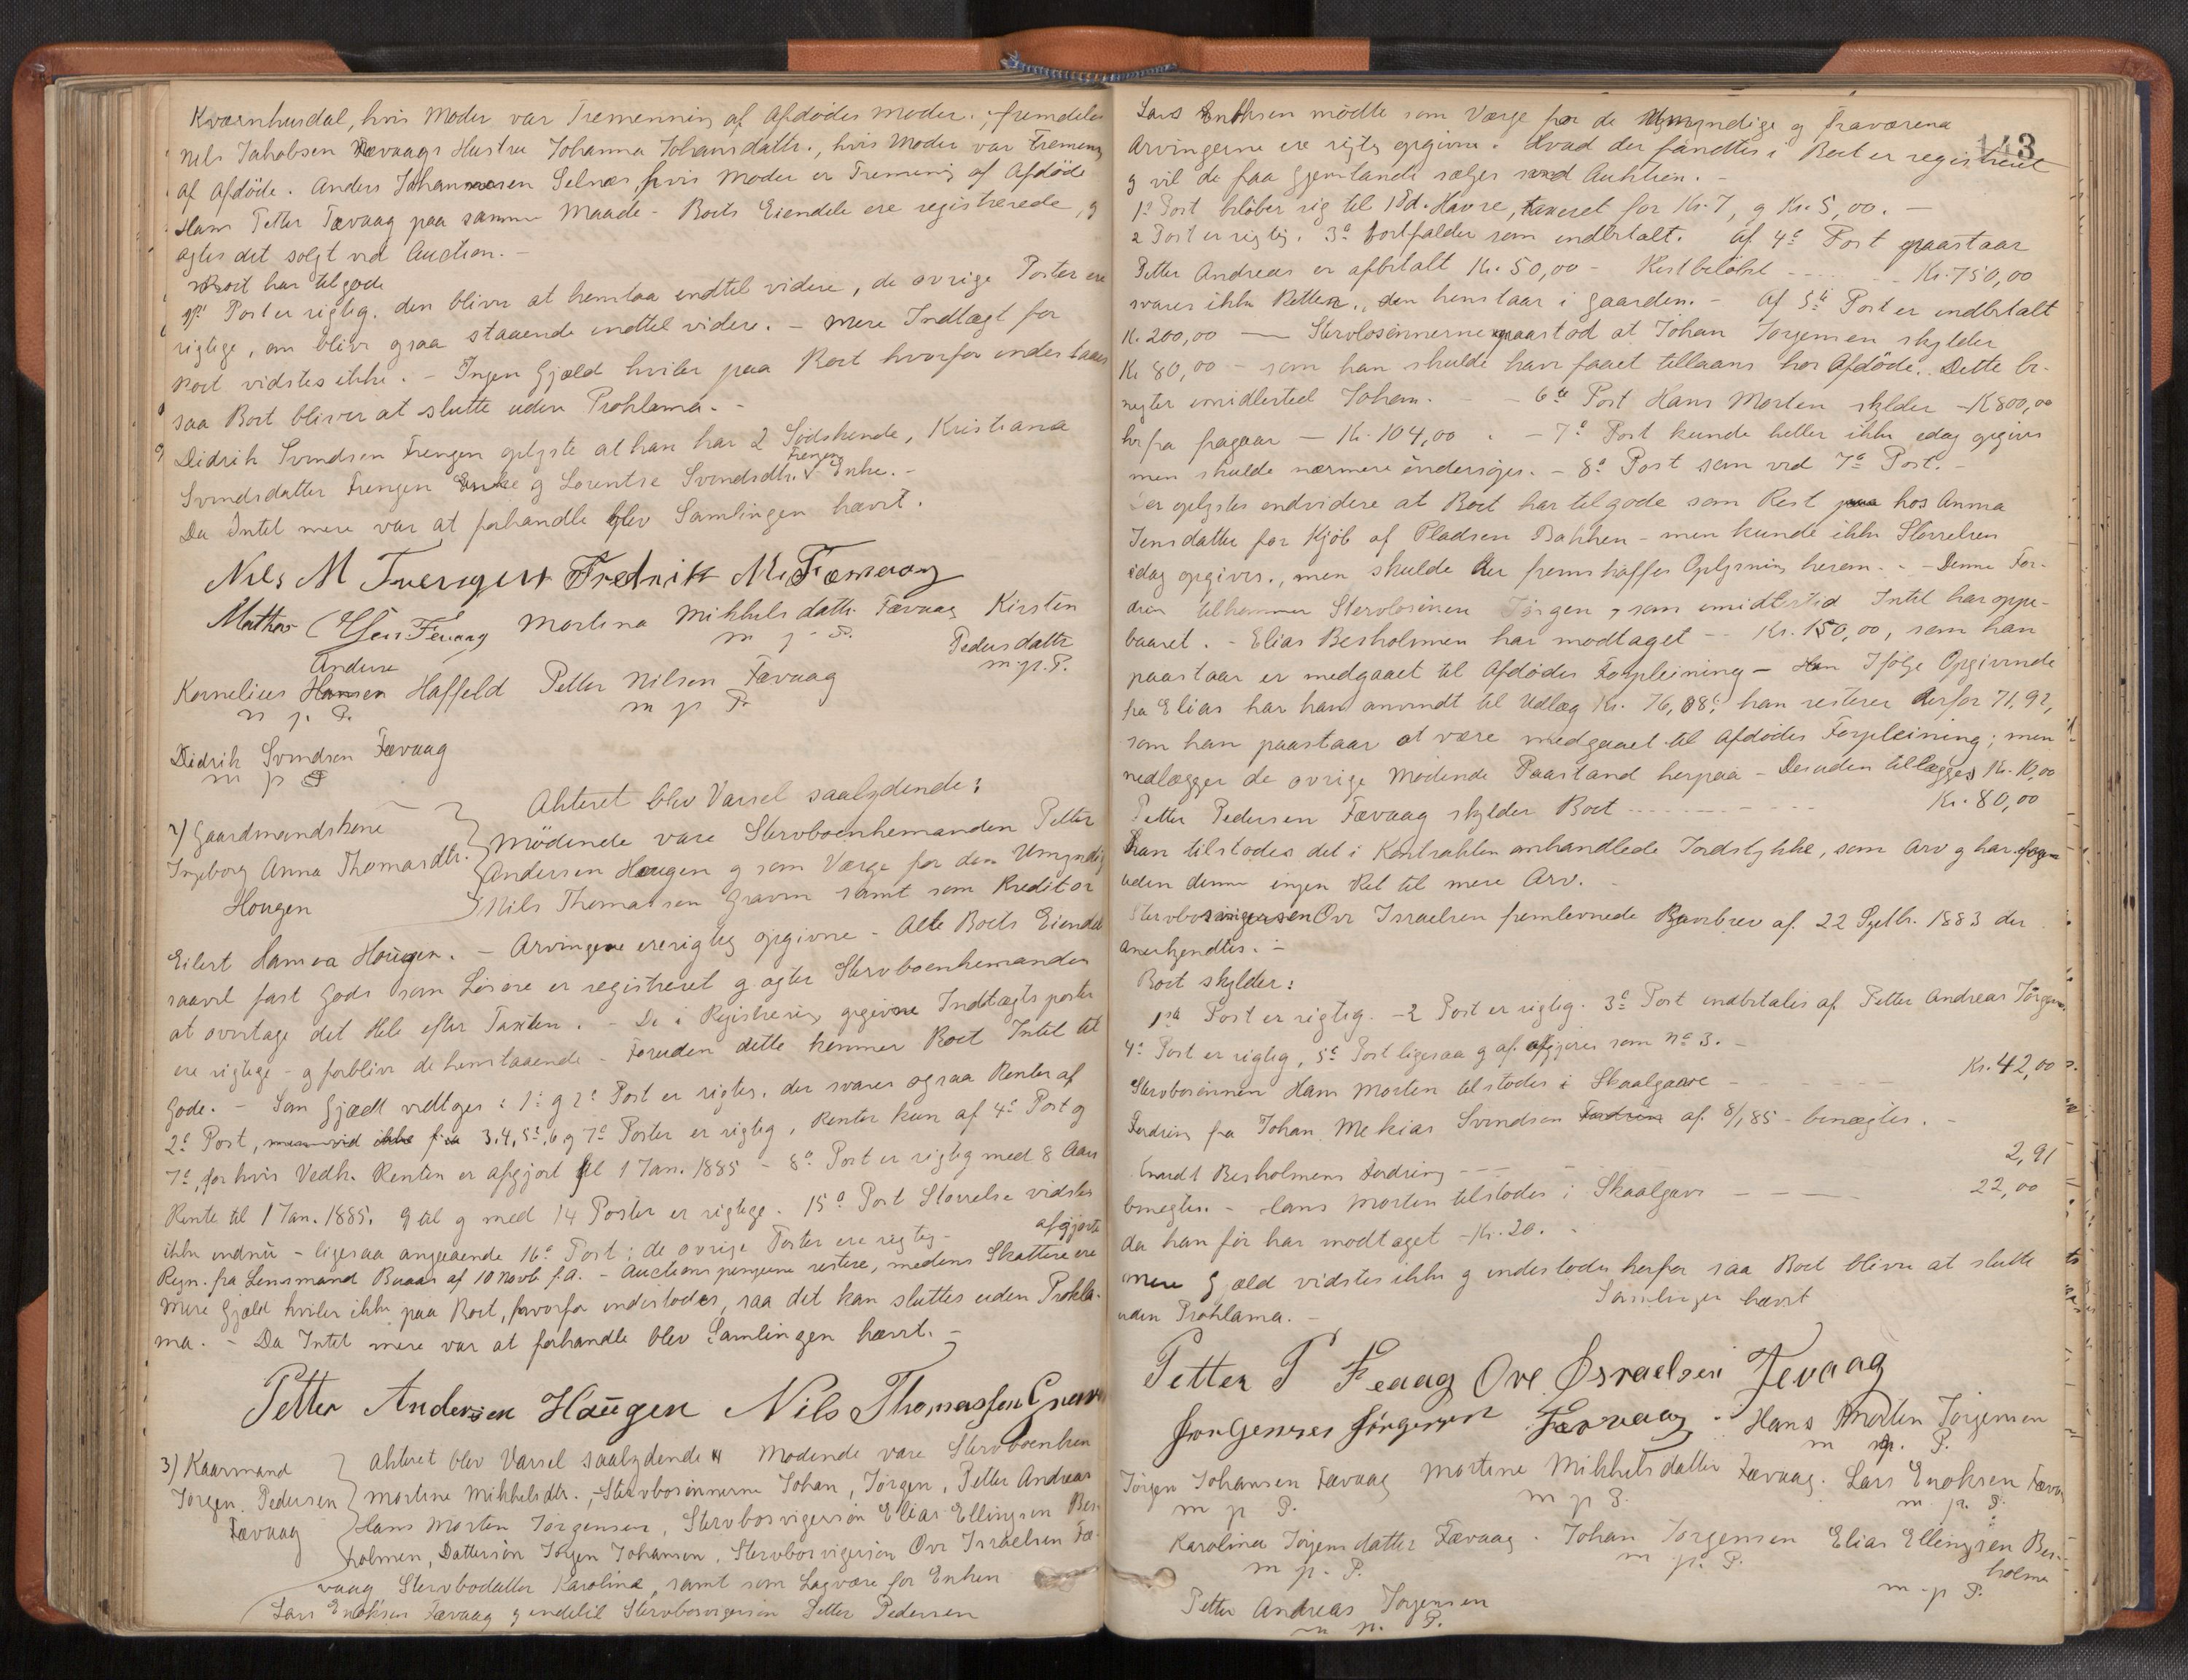 Kværnhusdal, hvis Moder var Tremenning af Afdødes Moder.; fremdeles
Nels Jakobsen Fævaags Hustru Johanna Johansdattr., hvis Moder var Tremen
af Afdøde. Anders Johannesen Selnæs, hvis Moder er Tremening af Afdøde
Hans Petter Fævaag paa samme Maade - Boets Eiendele ere registrerede, og
agtes det solgt ved Auction. -
Boet har tilgode
1ste Post er rigtig. den bliver at henstaa indtil videre, de øvrige Poster ere
rigtige, om blive ogsaa staaende indtil videre. - Mere Indtægt for
Boet vidstes ikke. - Ingen Gjæld hviler paa Boet hvorfor indestaaes
saa Boet bliver at slutte uden Proklama. -
Didrik Svendsen Frengen oplyste at han har 2 Sødskende, Kristiana
Svendsdatter Frengen Enke og Lorentse Svendsdtr. Frengen Enke. -
Da Intet mere var at forhandle blev Samlingen hævet.
Nils M Fredrik M. Fævaag
Mathær Martina Mikkelsdattr. Fævaag Kirsten
m p P. Pedersdattr
m. p. P.
Andere
Kornelius Hansen Haffeld Petter Nilsen Fævaag
m p. P. m p P.
Didrik Svendsen Fævaag
m p P
2) Gaardmandskone
Ingeborg Anna Thomasdtr.
Hougen
Akteret blev Varsel saalydende:
Mødende vare Stervboenkemanden Petter
Andersen Hougen og som Værge for den Umyndig
Nils Thomassen Graven samt som Kreditor
Eilert Hansen Hougen. - Arvingene ere rigtig opgivne - Alt Boets Eiendel
saavel fast Gods som Løsøre er registreret og agter Stervboenkemanden
at overtage det Hele efter Taxten. - De i Registrering opgivne Indtægtsposter
ere rigtige - og forblive de henstaaende - Foruden dette kommer Boet Intet til
Gode. - Som Gjæld vedtoges: 1ste og 2den Post er rigtig. der svares ogsaa Renter af
2den Post, 3.4.5te, 6 og 7de Poster er rigtig, Renter kun af 4de Post og
7de, for hvis Vedk. Renten er afgjort til 1 Jan. 1885 - 8de Post er rigtig med 8 Aars
Rente til 1 Jan. 1885. 9 til og med 14 Poster er rigtige. 15de Post Størrelse vidstes
ikke endnu - ligesaa angaaende 16de Post; de øvrige Poster ere rigtig -
Regn. fra Lensmand Buaas af 10 Novb. f. A. - Auctionspengene restere, medens Skattene ere afgjorte
Mere Gjæld hviler ikke paa Boet, hvorfor indestodes, saa det kan sluttes uden Prokla-
ma. - Da Intet mere var at forhandle blev Samlingen hævet. -
Petter Andersen Hougen Nils Thomassen Graven
3) Kaarmand
Jørgen Pedersen
Fævaag
Akteret blev Varsel saalydende Mødende vare Stervboenken
Martine Mikkelsdtr., Stervbosønnerne Johan, Jørgen, Petter Andreas
Hans Morten Jørgensen, Stervbosvigersøn Elias Ellingsen Bes-
holmen, Dattersøn Jørgen Johansen, Stervbosvigersøn Ove Israelsen Fæ-
vaag Stervbodatter Karolina, samt som Lagværge for Enken
Lars Enoksen Fævaag og endelil Stervbosvigersøn Petter Pedersen
143
Lars Enoksen mødte som Værge for de Umyndige og Fraværena
Arvingerne ere rigtig opgivne. Hvad der fandtes i Boet er registreret
og vil de faa Gjenstande sælges ved Auktion. -
1ste Post beløber sig til 1 Td. Havre, taxeret for Kr. 7, og Kr. 5,00. -
2 Post er rigtig. 3de bortfalder som indbetalt. Af 4de Post paastaar
Petter Andreas er afbetalt Kr. 50,00 - Restbeløbet - - - - Kr. 750,00
svares ikke Renter, den henstaar i Gaarden. - Af 5te Post er indbetalt
K. 200,00 — Stervbosønnerne paastod at Johan Jørgensen skylder
Kr 80,00 - som han skulde have faaet tillaans hos Afdøde. Dette be-
negter imidlertid Johan. - - 6te Post Hans Morten skylder - K 800,00
herfra fragaar - Kr. 104,00. - 7de Post kunde heller ikke idag opgives
men skulde nærmere undersøges. - 8de Post som ved 7de Post. -
Der oplystes endvidere at Boet har tilgode som Rest paa hos Anna
Jensdatter for Kjøb af Pladsen Bakken - men kunde ikke Størrelsen
idag opgives., men skulde der fremskaffes Oplysning herom. - Denne For-
dring tilkommer Stervbosønnen Jørgen, som imidlertid Intet har oppe-
baaret. - Elias Besholmen har modtaget - Kr. 150,00, som han
paastaar er medgaaet til Afdødes Forpleining - Ifølge Opgivende
fra Elias har han anvendt til Udlæg Kr. 76,08; han resterer derfor 71,92,
som han paastaar at være medgaaet til Afdødes Forpleining; men
nedlægger de øvrige Mødende Paastand herpaa - Desuden tillægges Kr. 10,00
Petter Pedersen Fævaag skylder Boet - - - - - Kr. 80,00
han tilstodes det i Kontrakten omhandlede Jordstykke, som Arv og har
uden denne ingen Ret til mere Arv. -
Stervbosvigersøn Ove Israelsen fremlevnede Gavebrev af 22 Septbr. 1883 der
anerkjendtes. -
Boet skylder:
1ste Post er rigtig. - 2 Post er rigtig. 3de Post indbetales af Petter Andreas Jørgens.
4de Post er rigtig, 5te Post ligesaa og afgjøres som No 3. -
Stervbosønnen Hans Morten tilstodes i Skaalgave - - Kr. 42,00
Fordring fra Johan Mekias Svendsen Fordring af 8/1 85 - benægtes. -
Besholmens Fordring - - - - 2,91
benegtes. - Hans Morten tilstodes i Skaalgave - - - - 22,00
da han før har modtaget - Kr. 20. -
Mere Gjæld vidstes ikke og indestodes herfor saa Boet bliver at slutte
uden Proklama. - Samlingen hævet
Petter P Feaag Ove Israelsen Fevaag
Jørgensen Fævaag. Hans Morten Jørgensen
m p. P.
Jørgen Johansen Fævaag Martine Mikkelsdatter Fævaag. Lars Enoksen Fæva
m p P. m p P. m. p. P.
Karolina Jørgensdatter Fævaag. Johan Jørgensen Elias Ellingsen Bes-
m p. P. m p. P. holme
m. p P.
Petter Andreas Jørgensen
m p. P.